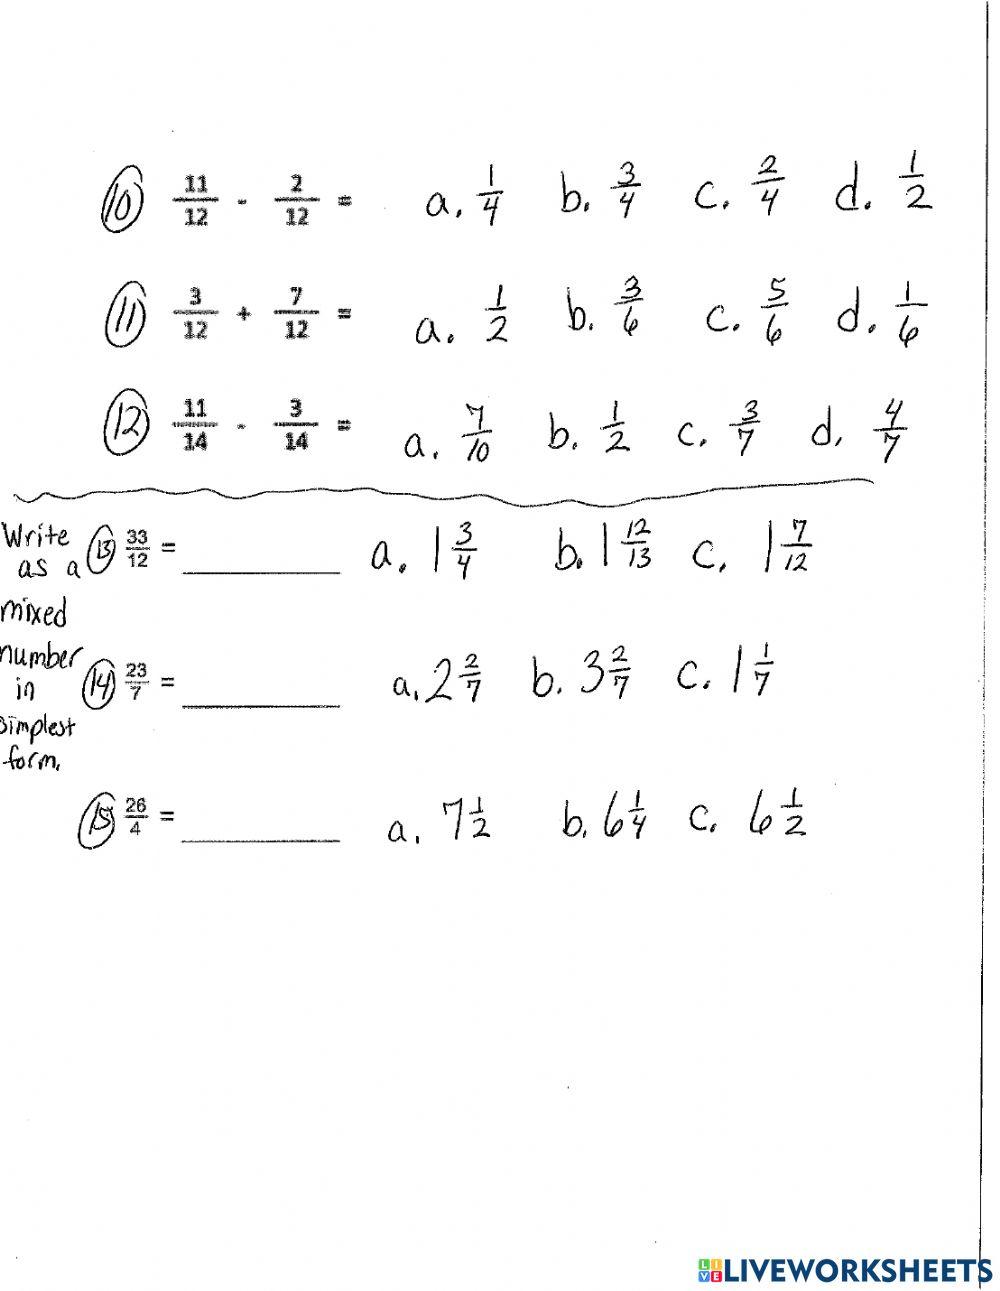 10 11/12 - 2/12 = a. 1/4 b. 3/4 c. 2/4 d. 1/2
11 3/12 + 7/12 = a. 1/2 b. 3/6 c. 5/6 d. 1/6
12 11/14 - 3/14 = a. 7/10 b. 1/2 c. 3/7 d. 4/7
Write as a mixed number in simplest form.
13 33/12 = ____ a. 1 3/4 b. 1 12/13 c. 1 7/12
14 23/7 = ____ a. 2 2/7 b. 3 2/7 c. 1 1/7
15 26/4 = ____ a. 7 1/2 b. 6 1/4 c. 6 1/2
LIVEWORKSHEETS